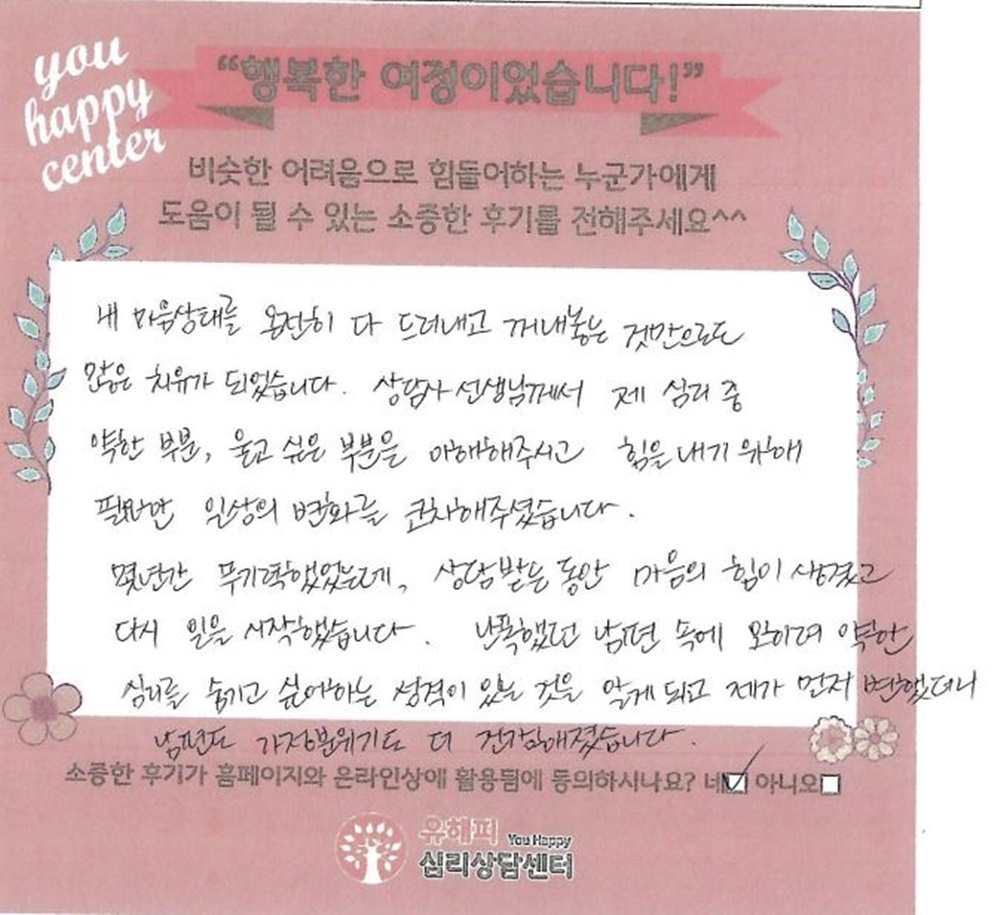 you
happy
center
“행복한 여정이었습니다!”
비슷한 어려움으로 힘들어하는 누군가에게
도움이 될 수 있는 소중한 후기를 전해주세요^^
내 마음상태를 온전히 다 드러내고 꺼내놓는 것만으로도
많은 치유가 되었습니다. 상담사 선생님께서 제 심리 중
약한 부분, 울고 싶은 부분을 이해해주시고 힘을 내기 위해
필요한 일상의 변화를 코치해주셨습니다.
몇년간 무기력했었는데, 상담받는 동안 마음의 힘이 생겼고
다시 일을 시작했습니다. 난폭했던 남편 속에 오히려 약한
심리를 숨기고 싶어하는 성격이 있는 것을 알게 되고 제가 먼저 변했더니
남편도 가정분위기도 더 건강해졌습니다.
소중한 후기가 홈페이지와 온라인상에 활용됨에 동의하시나요? 네☑ 아니오☐
유해피 You Happy
심리상담센터